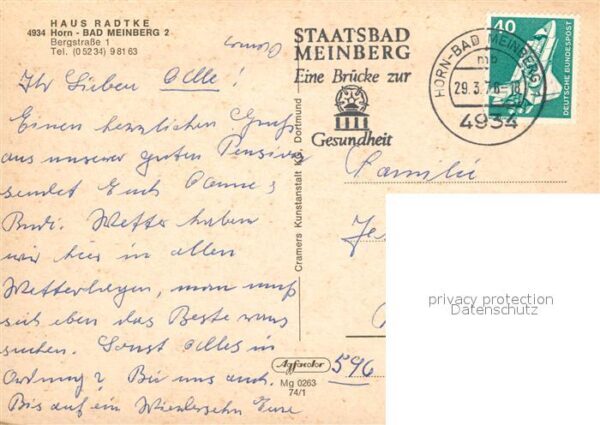 HAUS RADTKE
4934 Horn - BAD MEINBERG 2
Bergstraße 1
Tel. (0 52 34) 9 81 63
Ihr Lieben Alle!
Einen herzlichen Gruß
aus unserer guten Pension
sendet Euch
Wetter haben
wir hier in allen
Wetterlagen, man muß
sich eben das Beste
suchen. Sonst Alles in
Ordnung? Bei uns auch.
Bis auf ein Wiedersehn Eure
Cramers Kunstanstalt KG, Dortmund
STAATSBAD
MEINBERG
Eine Brücke zur
Gesundheit
HORN-BAD MEINBERG
mb
29.3.76
4934
40
DEUTSCHE BUNDESPOST
Familie
Agfacolor
Mg 0263
74/1
596
privacy protection
Datenschutz